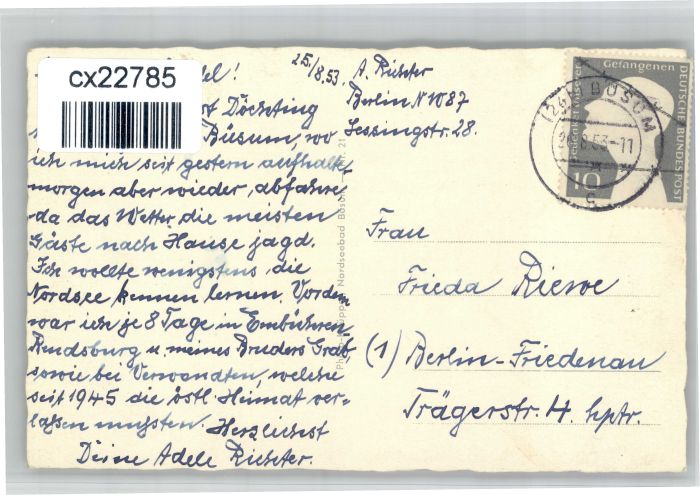 del!
cx22785
25./8.53.
A. Richter
Berlin NW 87
Lessingstr. 28.
Döchting
Büsum, wo
ich mich seit gestern aufhalte,
morgen aber wieder, abfahre
da das Wetter die meisten
Gäste nach Hause jagd.
Ich wollte wenigstens die
Nordsee kennen lernen. Vordem
war ich je 8 Tage in Embühren,
Rendsburg u. meines Bruders Grab,
sowie bei Verwandten, welche
seit 1945 die östl. Heimat ver=
laßen mußten. Herzlichst
Deine Adele Richter.
Nordseebad
21
Gefangenen
DEUTSCHE BUNDESPOST
10
BÜSUM
.8.53-11
c
Frau
Frieda Riewe
(1) Berlin-Friedenau
Trägerstr. 4. hptr.